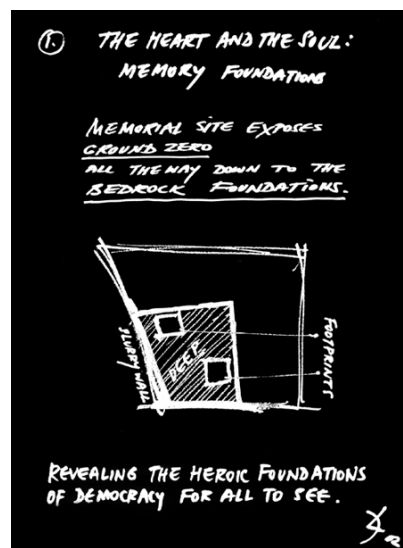 1. THE HEART AND THE SOUL:
MEMORY FOUNDATIONS
MEMORIAL SITE EXPOSES
GROUND ZERO
ALL THE WAY DOWN TO THE
BEDROCK FOUNDATIONS.
SLURRY WALL
DEEP
FOOTPRINTS
REVEALING THE HEROIC FOUNDATIONS
OF DEMOCRACY FOR ALL TO SEE.